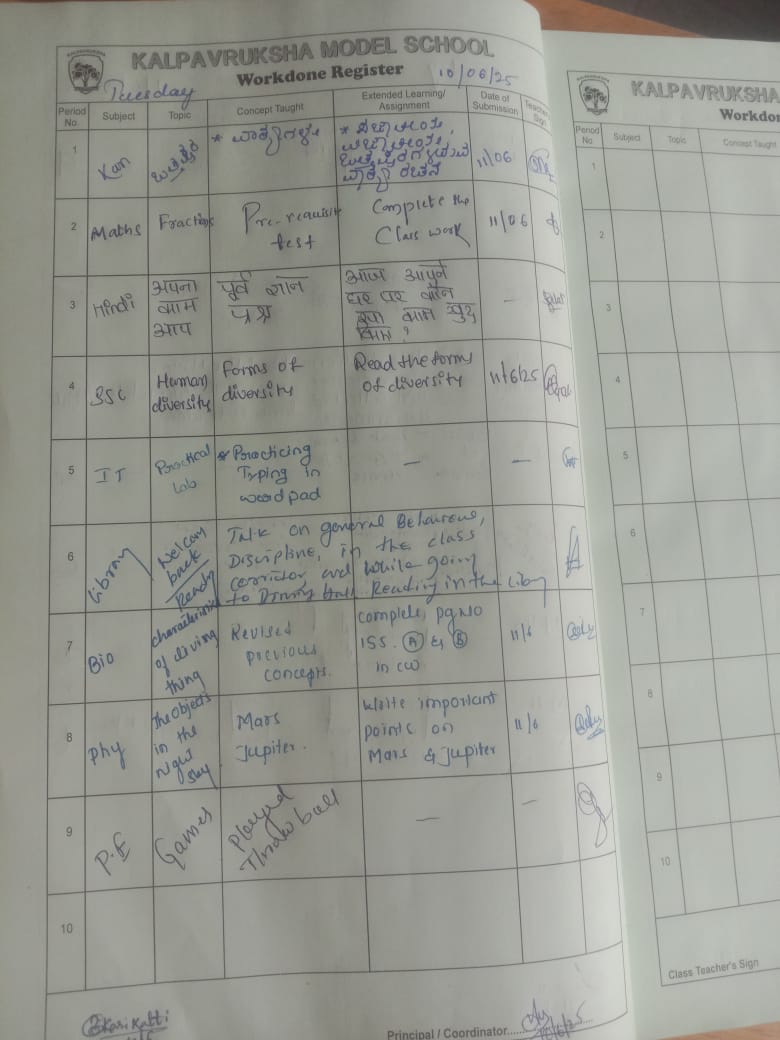 KALPAVRUKSHA MODEL SCHOOL
Workdone Register 10/06/25
Tuesday
Period No. Subject Topic Concept Taught Extended Learning/ Assignment Date of Submission Teacher Sign
1 Kan 11/06
2 Maths Fractions Pre-requisite test Complete the Class work 11/06
3 Hindi अपना काम आप पूर्व ज्ञान प्रश्न आज आपने घर पर कौन सा काम खुद किया ? –
4 SSC Human diversity Forms of diversity Read the forms of diversity 11/6/25
5 IT Practical Lab * Practicing Typing in wordpad – –
6 Library Welcom back Ready Talk on general Behaviours,
Discipline, in the class
corridor, and while going
to Dining Hall. Reading in the Libry
7 Bio characteristics of living thing Revised previous concepts. complete, pg No 155. A & B in cw 11/6
8 Phy The objects in the night sky Mars Jupiter. Write important points on Mars & Jupiter 11/6
9 P.E Games Played Throw ball – –
10
Karikatti
Principal / Coordinator
KALPAVRUKSHA
Workdon
Period No Subject Topic Concept Taught
1
2
3
4
5
6
7
8
9
10
Class Teacher's Sign